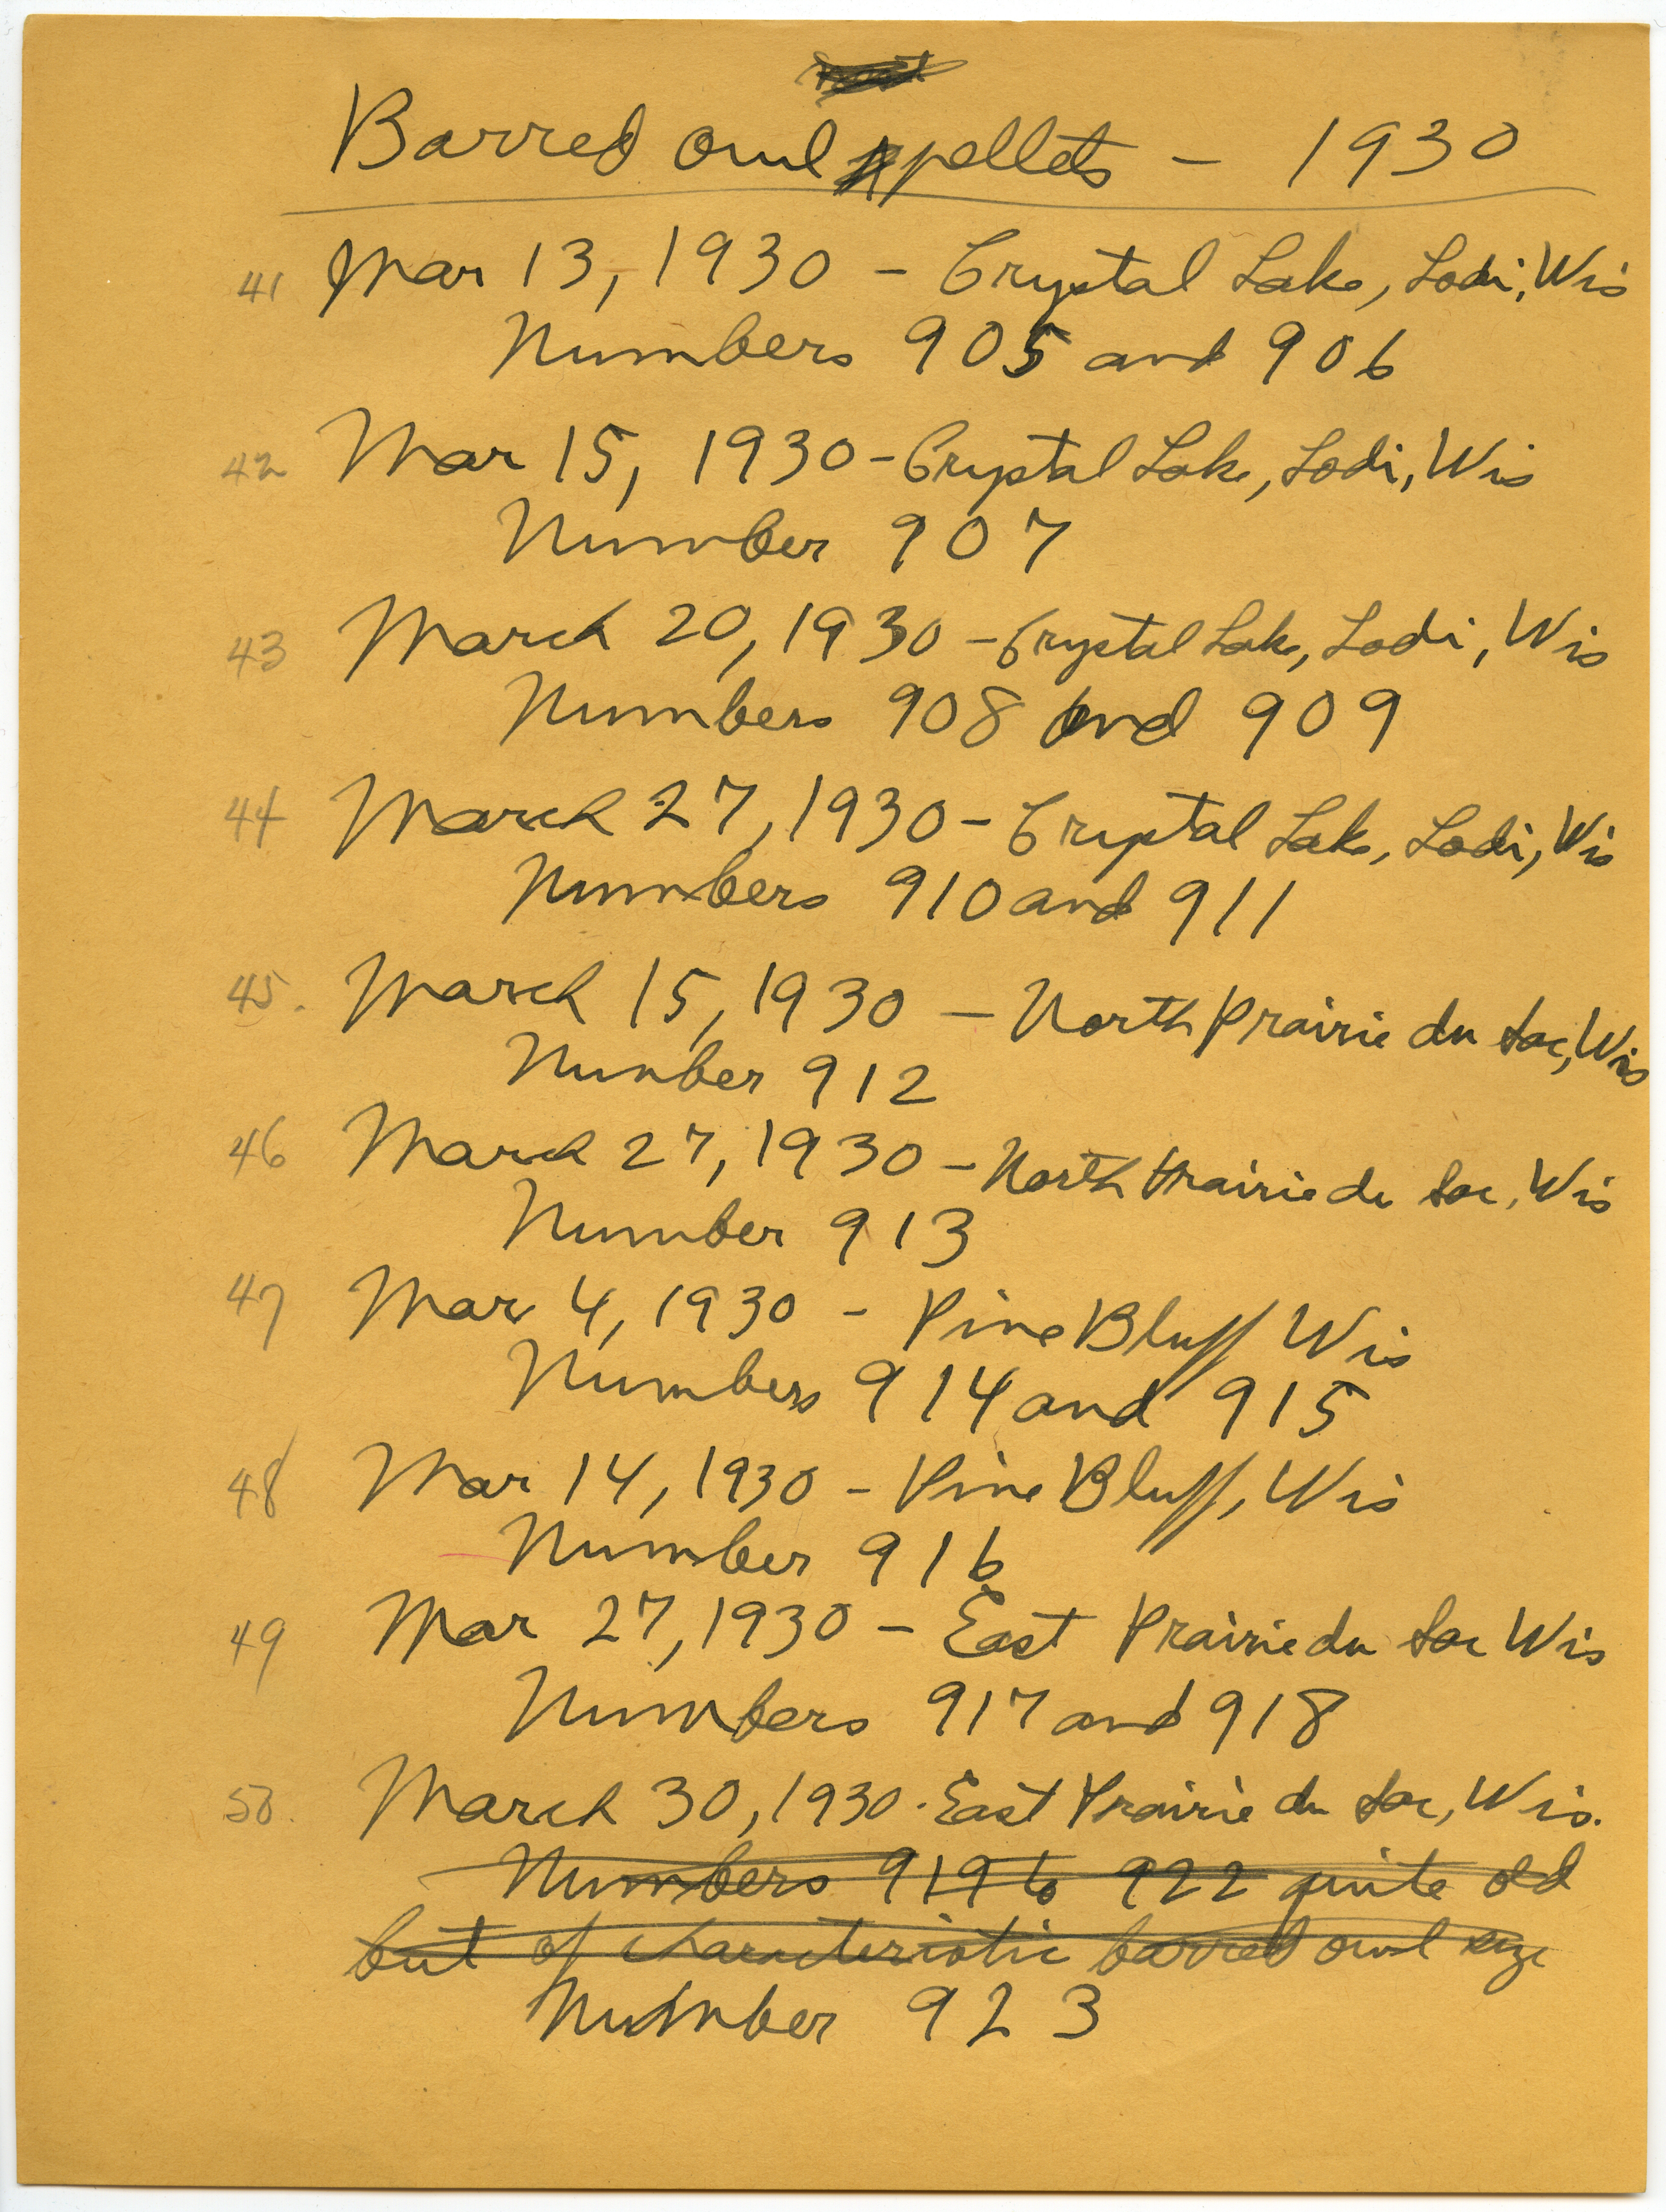 Barred owl pellets - 1930
41 Mar 13, 1930 - Crystal Lake, Lodi, Wis
Numbers 905 and 906
42 Mar 15, 1930 - Crystal Lake, Lodi, Wis
Number 907
43 March 20, 1930 - Crystal Lake, Lodi, Wis
Numbers 908 and 909
44 March 27, 1930 - Crystal Lake, Lodi, Wis
Numbers 910 and 911
45. March 15, 1930 - North Prairie du Sac, Wis
Number 912
46 March 27, 1930 - North Prairie du Sac, Wis
Number 913
47 Mar 4, 1930 - Pine Bluff Wis
Numbers 914 and 915
48 Mar 14, 1930 - Pine Bluff, Wis
Number 916
49 Mar 27, 1930 - East Prairie du Sac Wis
Numbers 917 and 918
50. March 30, 1930 - East Prairie du Sac, Wis.
Numbers 919 to 922 quite old
but of characteristic barred owl size
Number 923